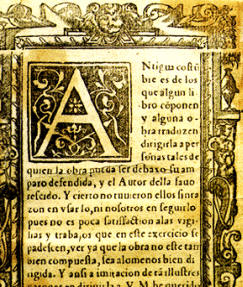 Ntigua costũ
bre es de los
que algun li
bro cõponen
y alguna o-
bra traduzen
dirigirla a per
sonas tales de
quien la obra pueda ser debaxo su am
paro defendida, y el Autor della fauo
rescido. Y cierto no tuuieron ellos sin ra
zon en vsarlo, ni nosotros en seguirlo
pues no es poca satisfaction a las vigi-
lias y trabajos que en este exercicio se
padescen, ver ya que la obra no este tam
bien compuesta, sea alomenos bien di
rigida. Y ansi a imitacion de tã illustres